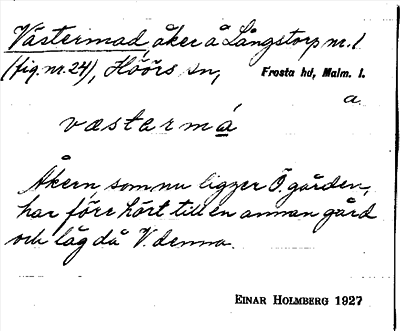 Västermad, åker å Långstorp nr. 1
(fig. nr. 24), Höörs sn, Frosta hd, Malm. l.
a.
vastarmá
Åkern, som nu ligger Ö. gården,
har förr hört till en annan gård
och låg då V. denna.
EINAR HOLMBERG 1927